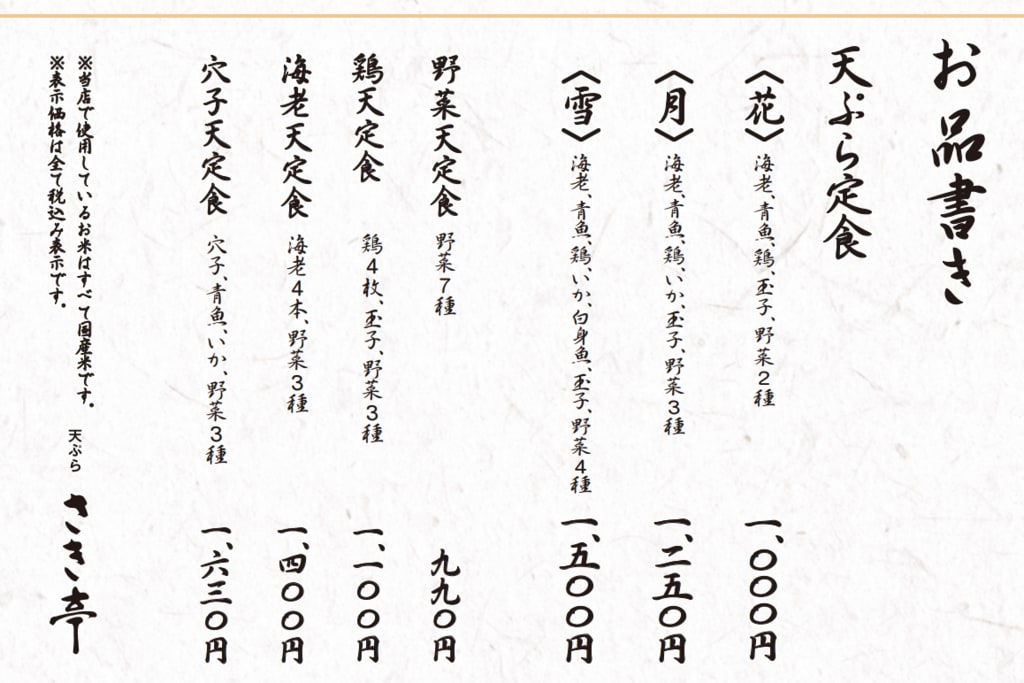 お品書き
天ぷら定食
〈花〉 海老、青魚、鶏、玉子、野菜2種 一、〇〇〇円
〈月〉 海老、青魚、鶏、いか、玉子、野菜3種 一、二五〇円
〈雪〉 海老、青魚、鶏、いか、白身魚、玉子、野菜4種 一、五〇〇円
野菜天定食 野菜7種 九九〇円
鶏天定食 鶏4枚、玉子、野菜3種 一、一〇〇円
海老天定食 海老4本、野菜3種 一、四〇〇円
穴子天定食 穴子、青魚、いか、野菜3種 一、六三〇円
※当店で使用しているお米はすべて国産米です。
※表示価格は全て税込み表示です。
天ぷら さき亭